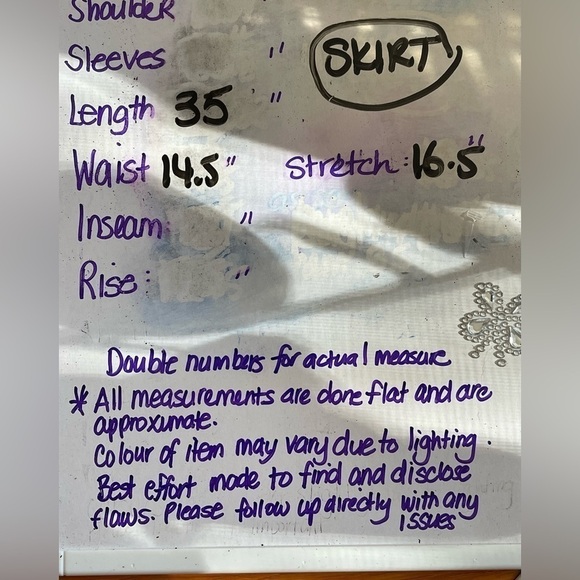 Shoulder
Sleeves "
SKIRT
Length 35 "
Waist 14.5" Stretch: 16.5"
Inseam: "
Rise: "
Double numbers for actual measure
* All measurements are done flat and are
approximate.
Colour of item may vary due to lighting.
Best effort made to find and disclose
flaws. Please follow up directly with any
issues